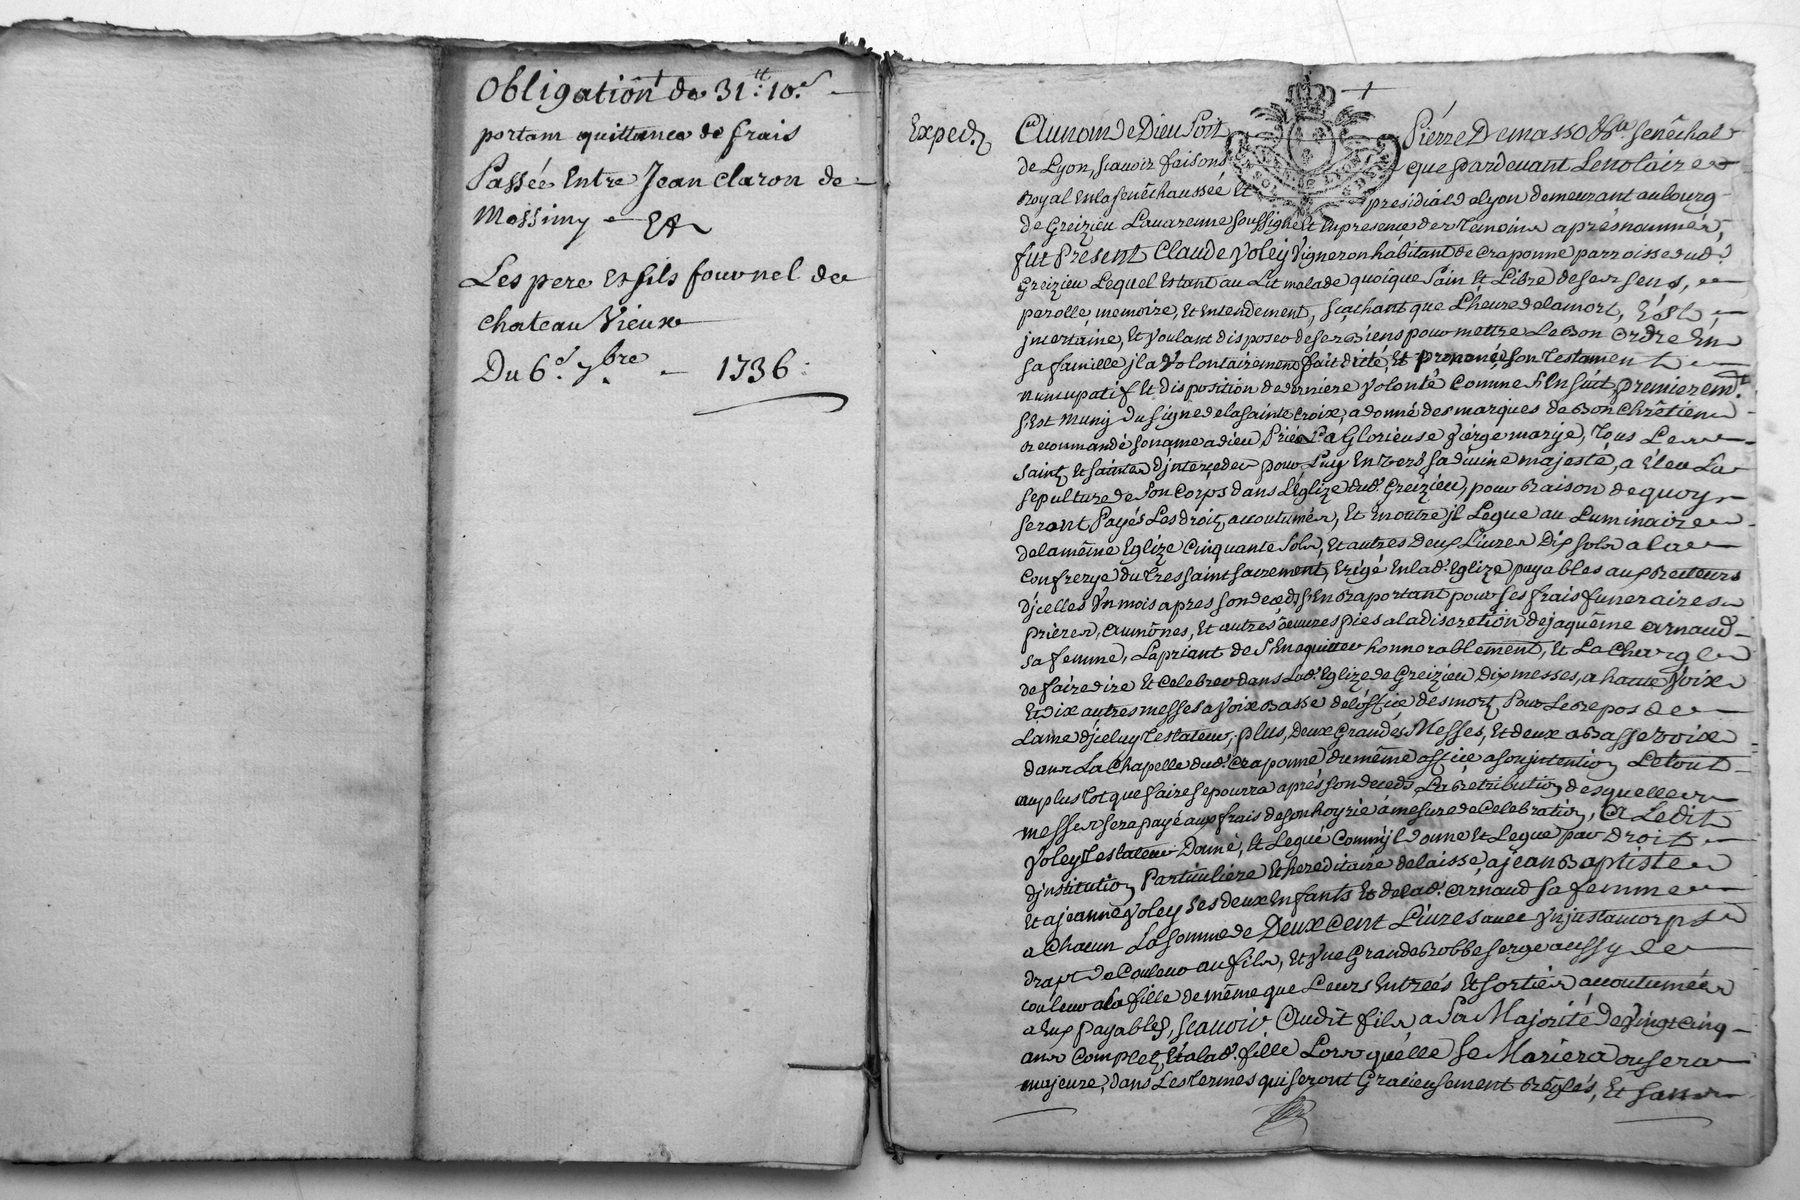 Obligation de 31.tt 10.s
portam quittance de frais
Passée Entre Jean Claron de
Messimy Et
Les pere et fils fournel de
chateau Vieux
Du 6.e 7.bre 1736.
Exped.
Au nom de Dieu soit Pierre Demasso Sénéchal
de Lyon, scavoir faisons que pardevant Le notaire
Royal En la senêchaussée Et presidial de Lyon demeurant au bourg
de Greizieu Lavarenne soussigné, Et En presence des temoins aprés nommés,
fut Présent Claude Voley Vigneron habitant de Craponne parroisse dud.
Greizieu Lequel Estant au Lit malade quoique Sain Et Libre de ses sens,
parolle, memoire, Et Entendement, sçachant que L'heure de la mort, Est
jncertaine, Et voulant disposer de ses Biens pour mettre Le Bon Ordre En
sa famille jl a Volontairement fait dicté, Et prononcé son Testament
nuncupatif Et disposition de derniere Volonté Comme s'Ensuit, premierem.t
s'Est muny du signe de la sainte Croix, a donné des marques de Bon Chrêtien
Recommandé son ame a dieu Prié La Glorieuse Vierge marije, Tous Les
saints Et saintes d'jnterceder pour Luy Envers sa divine majesté, a éleu La
sepulture de son Corps dans L'églize dud. Greizieu, pour Raison de quoy
seront Payés Les droits accoutumés, Et En outre jl Legue au Luminaire
de la même Eglize Cinquante Sols, Et autres Deux Livres Dix sols a la
Confrerye du tres saint sacrement, Erigé En lad. Eglize payables aux Recteurs
d'jcelles Un mois apres son deceds, s'En Raportant pour ses frais funeraires
prieres, aumônes, Et autres oeuvres pies a la discretion de jaquême arnaud
sa femme, La priant de s'En aquitter honnorablement, Et La Charge
de faire dire Et Celebrer dans Lad. Eglize de Greizieu Dix messes, a haute Voix
Et Dix autres messes a Voix Basse de l'office des morts Pour Le Repos de
L'ame d'jceluy Testateur, plus, Deux Grandes Messes, Et deux a Basse voix
dans La Chapelle dud. Craponne du même office a son jntention Le tout
au plus tot que faire se pourra aprés son deceds, La Retribution desquelles
messes sera payé aux frais de son hoyrie à mesure de Celebration, A Ledit
Voley Testateur Donné, Et Legué Comm'jl donne Et Legue par Droit
d'jnstitution Particuliere Et hereditaire delaisse a jean Baptiste
Et a jeanne Voley ses deux Enfants Et de lad. Arnaud sa femme
a Chacun La somme de Deux Cent Livres avec Un justaucorps
drapt de Couleur au fils, Et Une Grande Robbe serge aussy de
couleur a la fille de même que Leurs Entreés Et sorties accoutumées
a Eux payables, scavoir Audit fils a Sa Majorité de Vingt cinq
ans Complets Et à lad. fille Lors qu'elle se Mariera ou sera
majeure, dans Les termes qui seront Gracieusement Réglés, Et sans